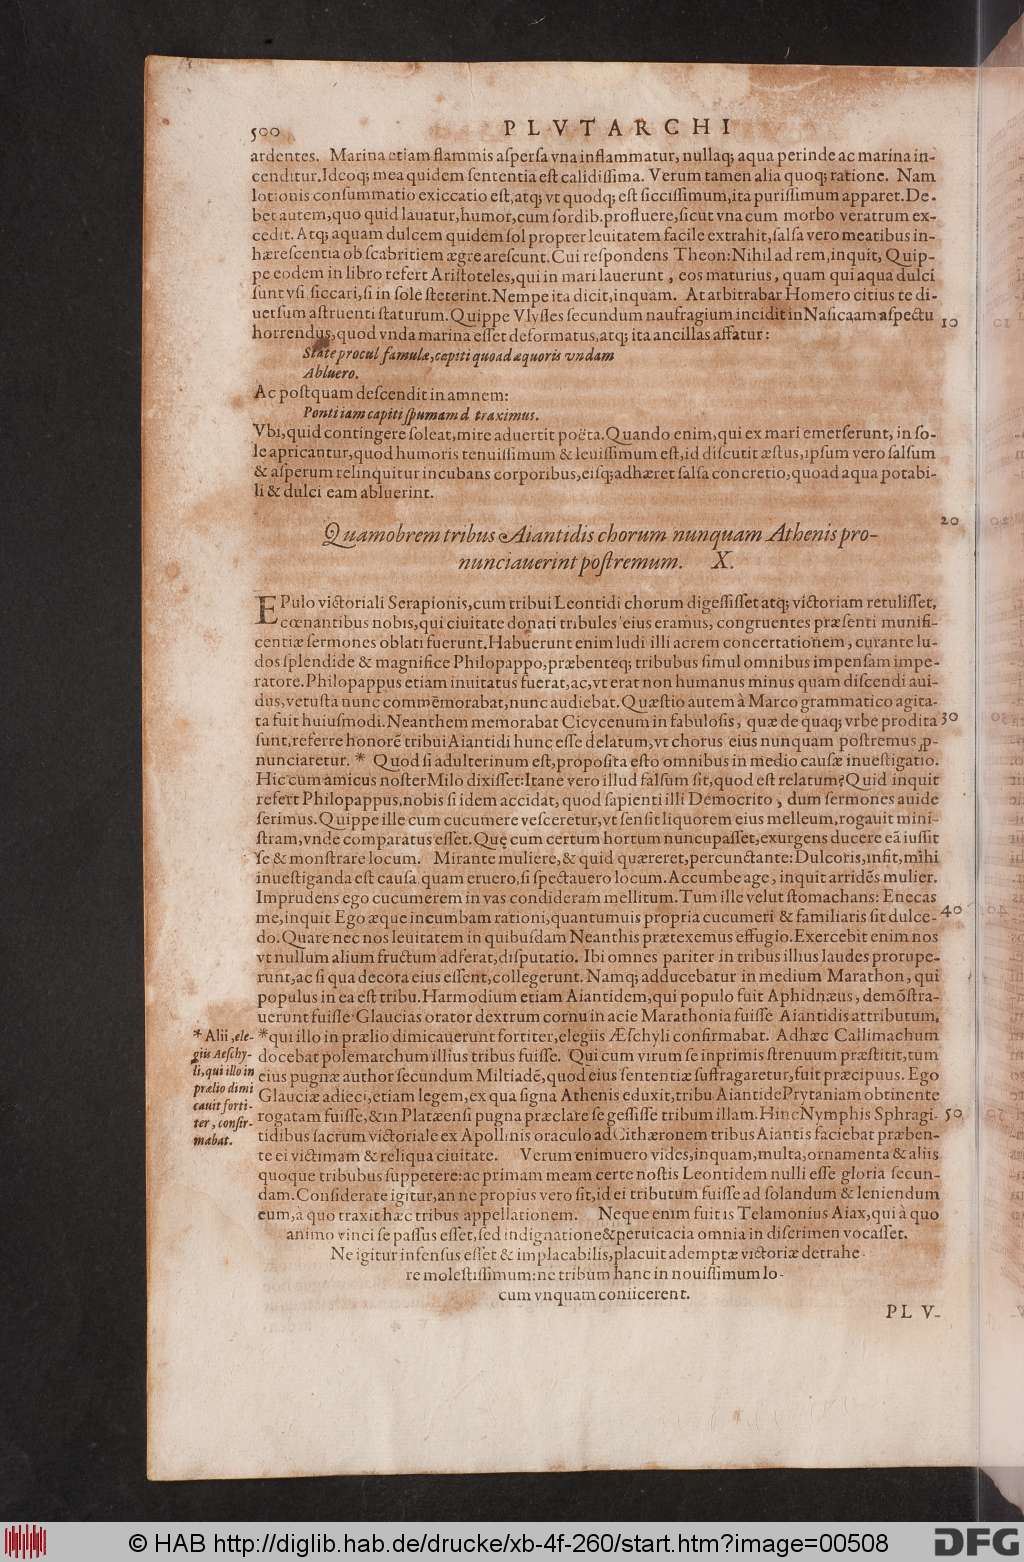 500 PLVTARCHI
ardentes. Marina etiam flammis aſperſa vna inflammatur, nullaq; aqua perinde ac marina in-
cenditur. Idcoq; mea quidem ſententia eſt calidiſſima. Verum tamen alia quoq; ratione. Nam
lotionis conſummatio exiccatio eſt, atq; vt quodq; eſt ſicciſſimum, ita puriſſimum apparet. De-
bet autem, quo quid lauatur, humor, cum ſordib. profluere, ſicut vna cum morbo veratrum ex-
cedit. Atq; aquam dulcem quidem ſol propter leuitatem facile extrahit, ſalſa vero meatibus in-
hæreſcentia ob ſcabritiem ægre areſcunt. Cui reſpondens Theon: Nihil ad rem, inquit, Quip-
pe eodem in libro refert Ariſtoteles, qui in mari lauerunt, eos maturius, quam qui aqua dulci
ſunt vſi ſiccari, ſi in ſole ſteterint. Nempe ita dicit, inquam. At arbitrabar Homero citius te di-
uerſum aſtruenti ſtaturum. Quippe Vlyſſes ſecundum naufragium incidit in Nauſicaam aſpectu 10
horrendus, quod vnda marina eſſet deformatus, atq; ita ancillas affatur:
State procul famulæ, capiti quoad æquoris vndam
Abluero.
Ac poſtquam deſcendit in amnem:
Ponti iam capiti ſpumam d traximus.
Vbi, quid contingere ſoleat, mire aduertit poëta. Quando enim, qui ex mari emerſerunt, in ſo-
le apricantur, quod humoris tenuiſſimum & leuiſſimum eſt, id diſcutit æſtus, ipſum vero ſalſum
& aſperum relinquitur incubans corporibus, eiſq; adhæret ſalſa concretio, quoad aqua potabi-
li & dulci eam abluerint.
20
Quamobrem tribus Aiantidis chorum nunquam Athenis pro-
nunciauerint poſtremum. X.
EPulo victoriali Serapionis, cum tribui Leontidi chorum digeſſiſſet atq; victoriam retuliſſet,
cœnantibus nobis, qui ciuitate donati tribules eius eramus, congruentes præſenti munifi-
centiæ ſermones oblati fuerunt. Habuerunt enim ludi illi acrem concertationem, curante lu-
dos ſplendide & magnifice Philopappo, præbenteq; tribubus ſimul omnibus impenſam impe-
ratore. Philopappus etiam inuitatus fuerat, ac, vt erat non humanus minus quam diſcendi aui-
dus, vetuſta nunc commēmorabat, nunc audiebat. Quæſtio autem à Marco grammatico agita-
ta fuit huiuſmodi. Neanthem memorabat Cicycenum in fabuloſis, quæ de quaq; vrbe prodita 30
ſunt, referre honorē tribui Aiantidi hunc eſſe delatum, vt chorus eius nunquam poſtremus ꝓ-
nunciaretur. * Quod ſi adulterinum eſt, propoſita eſto omnibus in medio cauſæ inueſtigatio.
Hic cum amicus noſter Milo dixiſſet: Itane vero illud falſum ſit, quod eſt relatum? Quid inquit
refert Philopappus, nobis ſi idem accidat, quod ſapienti illi Democrito, dum ſermones auide
ſerimus. Quippe ille cum cucumere veſceretur, vt ſenſit liquorem eius melleum, rogauit mini-
ſtram, vnde comparatus eſſet. Quę cum certum hortum nuncupaſſet, exurgens ducere eā iuſſit
ſe & monſtrare locum. Mirante muliere, & quid quæreret, percunctante: Dulcoris, infit, mihi
inueſtiganda eſt cauſa quam eruero, ſi ſpectauero locum. Accumbe age, inquit arridēs mulier.
Imprudens ego cucumerem in vas condideram mellitum. Tum ille velut ſtomachans: Enecas
me, inquit Ego æque incumbam rationi, quantumuis propria cucumeri & familiaris ſit dulce- 40
do. Quare nec nos leuitatem in quibuſdam Neanthis prætexemus effugio. Exercebit enim nos
vt nullum alium fructum adferat, diſputatio. Ibi omnes pariter in tribus illius laudes prorupe-
runt, ac ſi qua decora eius eſſent, collegerunt. Namq; adducebatur in medium Marathon, qui
populus in ea eſt tribu. Harmodium etiam Aiantidem, qui populo fuit Aphidnæus, demōſtra-
uerunt fuiſſe. Glaucias orator dextrum cornu in acie Marathonia fuiſſe Aiantidis attributum,
*qui illo in prælio dimicauerunt fortiter, elegiis Æſchyli confirmabat. Adhæc Callimachum
docebat polemarchum illius tribus fuiſſe. Qui cum virum ſe inprimis ſtrenuum præſtitit, tum
eius pugnæ author ſecundum Miltiadē, quod eius ſententiæ ſuffragaretur, fuit præcipuus. Ego
Glauciæ adieci, etiam legem, ex qua ſigna Athenis eduxit, tribu Aiantide Prytaniam obtinente
rogatam fuiſſe, & in Platæenſi pugna præclare ſe geſſiſſe tribum illam. Hinc Nymphis Sphragi- 50
tidibus ſacrum victoriale ex Apollinis oraculo ad Cithæronem tribus Aiantis faciebat præben-
te ei victimam & reliqua ciuitate. Verum enimuero vides, inquam, multa, ornamenta & aliis
quoque tribubus ſuppetere: ac primam meam certe noſtis Leontidem nulli eſſe gloria ſecun-
dam. Conſiderate igitur, an ne propius vero ſit, id ei tributum fuiſſe ad ſolandum & leniendum
eum, à quo traxit hæc tribus appellationem. Neque enim fuit is Telamonius Aiax, qui à quo
animo vinci ſe paſſus eſſet, ſed indignatione & peruicacia omnia in diſcrimen vocaſſet.
Ne igitur infenſus eſſet & implacabilis, placuit ademptæ victoriæ detrahe-
re moleſtiſſimum: ne tribum hanc in nouiſſimum lo-
cum vnquam coniicerent.
PLV-
* Alii, ele-
giis Aeſchy-
li, qui illo in
prælio dimi
cauit forti-
ter, confir-
mabat.
© HAB http://diglib.hab.de/drucke/xb-4f-260/start.htm?image=00508
DFG